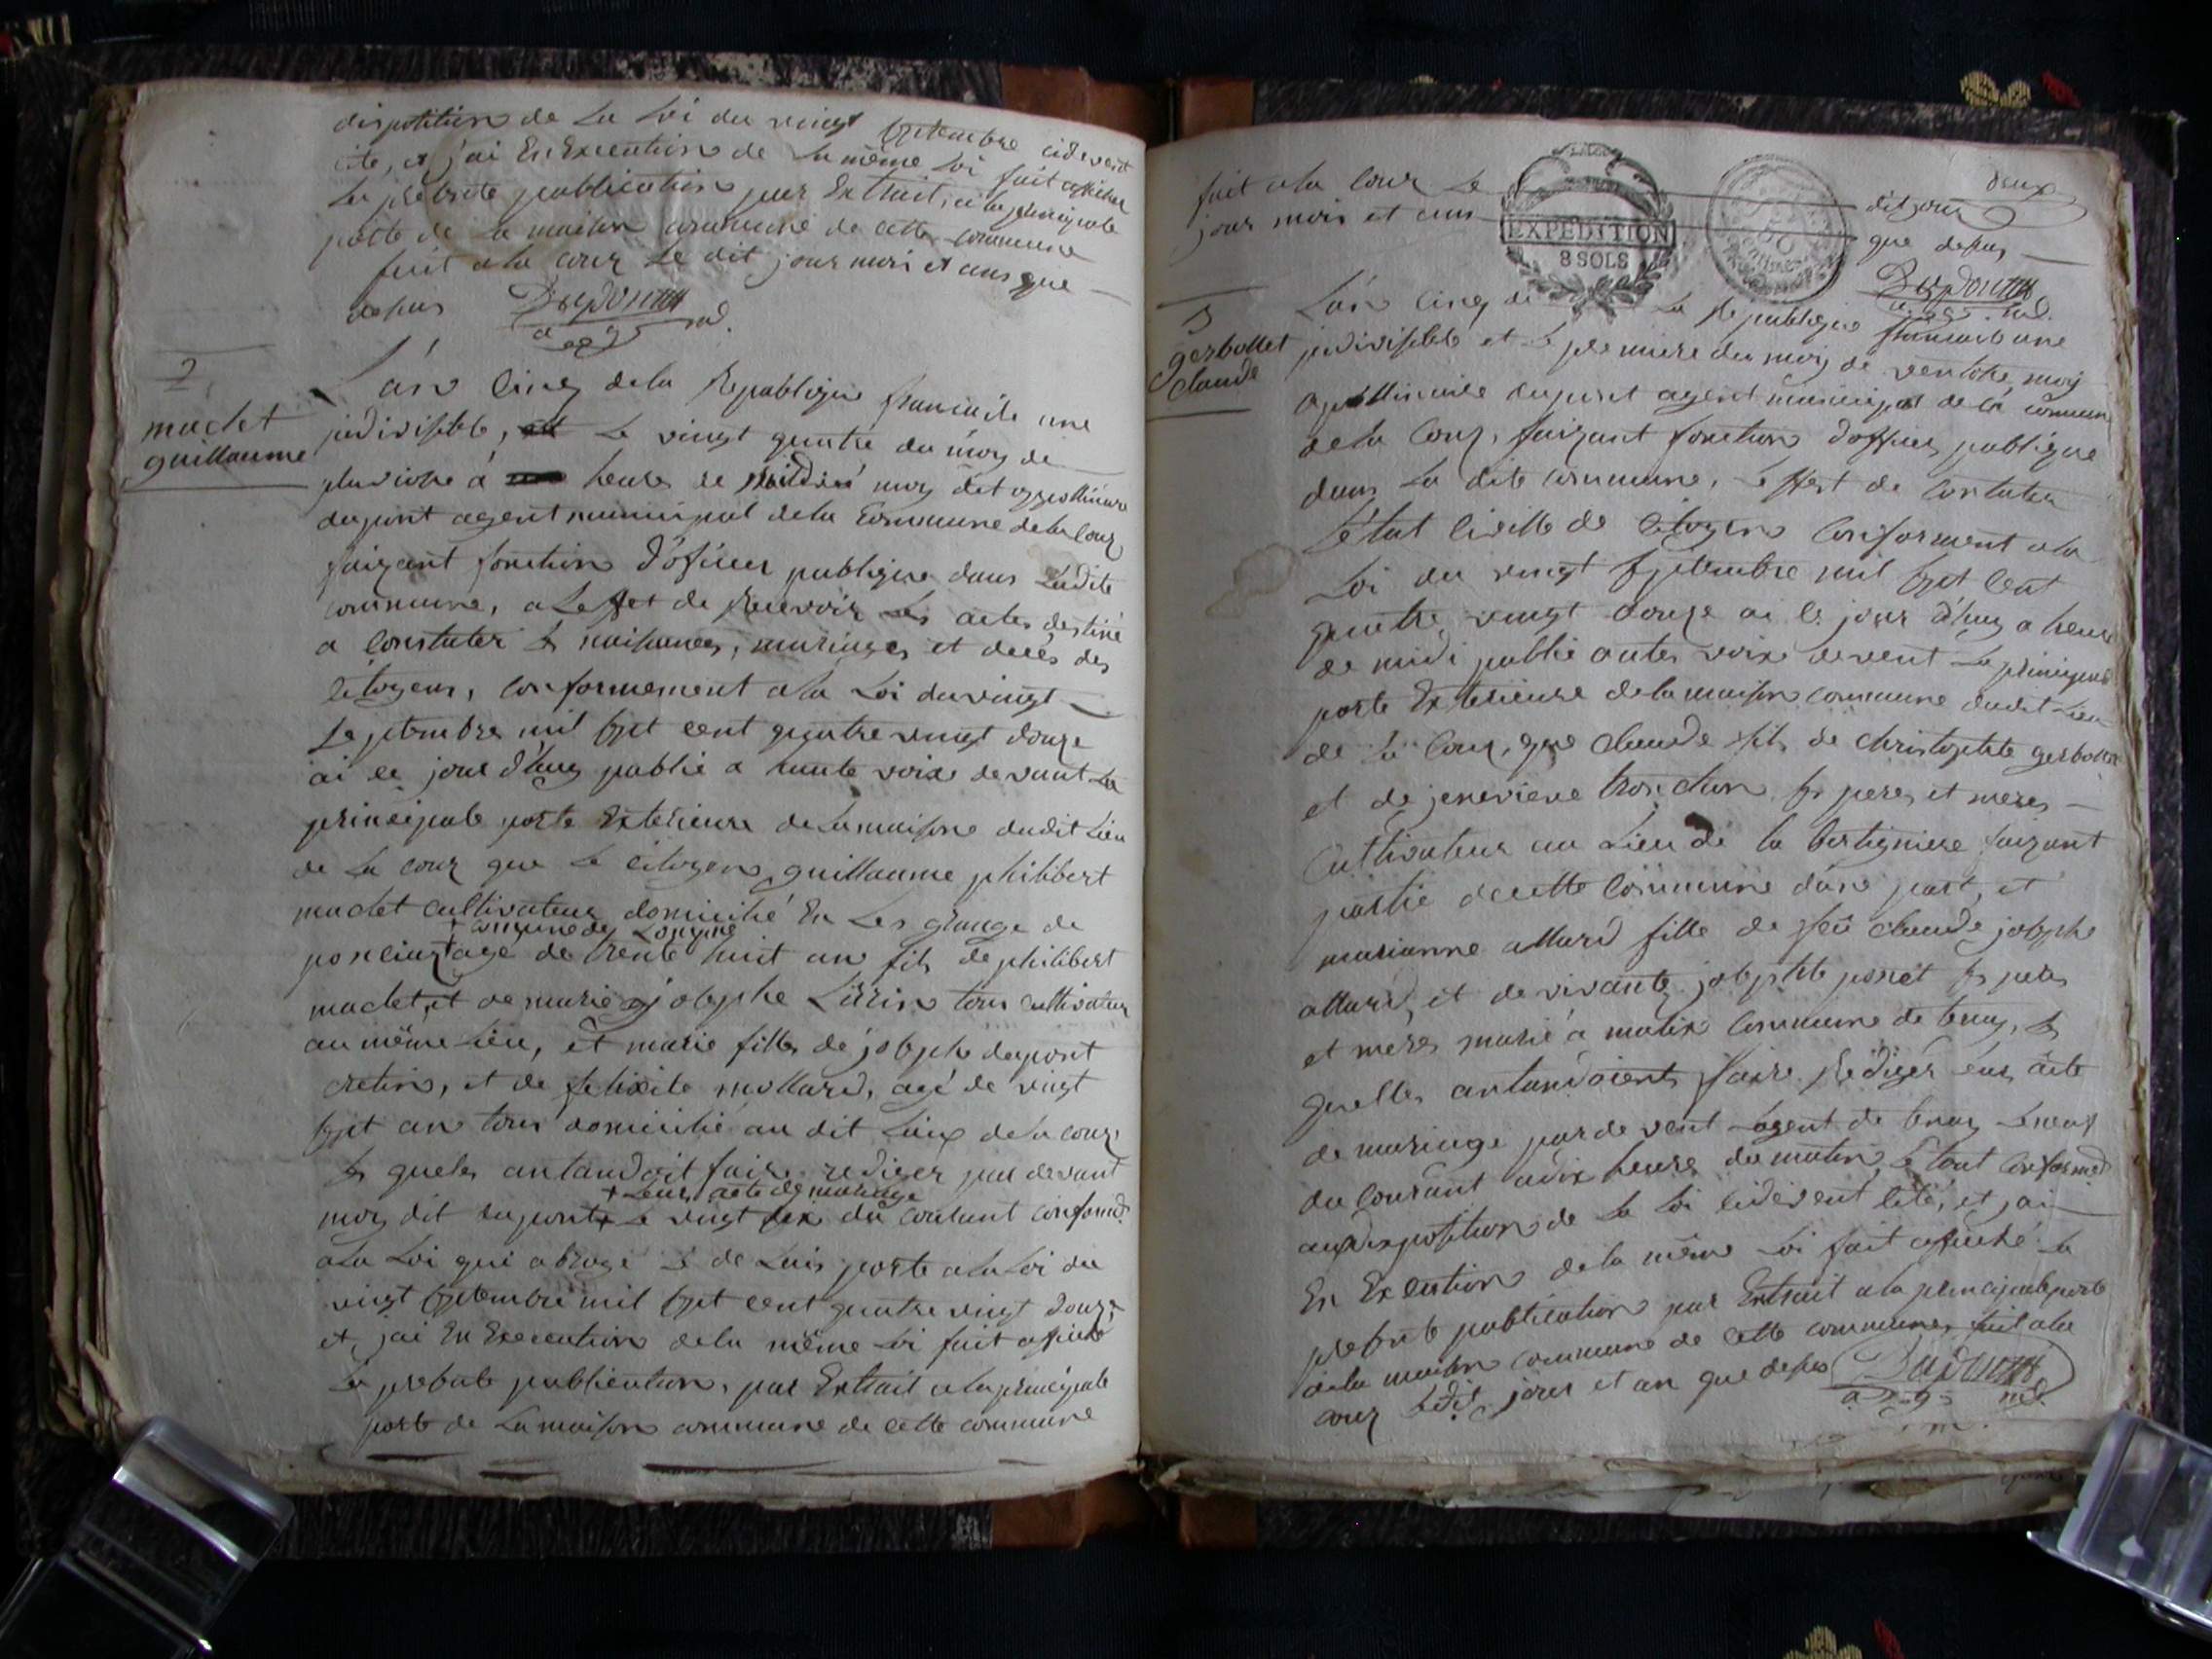 dispotition de La Loi du vingt septembre cidevent
cité, et j'ai En Execution de La même Loi fait afficher
La presente publication par Extrait, a la principale
porte de La maison commune de cette commune
fait a la cour Le dit jour mois et ans que
desus Dupont
a
2
machet
guillaume
L'an Cinq de la Republique francaise une
indivisible, Le vingt quatre du moy de
pluviose à heure de midi moy dit appollinaire
dupont agent municipal de la Commune de la Cour
faizant fonction d'oficier publique dans Ladite
commune, a Leffet de Recevoir Les actes destiné
a Constater les naisances, mariages et decès des
Citoyens, Conformement a la Loi du vingt
Septembre mil sept cent quatre vingt douze
ai ce jour d'huy publié a haute voix devant La
principale porte Exterieure de la maisone dudit Lieu
de La cour que Le Citoyen guillaume philibert
machet cultivateur domicilié En Les grange de
+ comune de
age de trente huit an fils de philibert
machet, et de marie josephe tous cultivateur
au même Lieu, et marie fille de josephe dupont
cretin, et de felixite mollard, agé de vingt
sept an tous domicilié au dit Lieux de la cour,
les quels antandoit faire rediger par devant
+ Leur acte de mariage
moy dit dupont + Le vingt six du courant conformt
a la Loi qui abroge porte a la Loi du
vingt septembre mil sept cent quatre vingt douze,
et, j'ai En Execution de la même Loi fait affiché
La presente publication, par Extrait a la principale
porte de La maison commune de cette commune
deux
fait a la Cour Le dit jour
jour mois et ans que desus
EXPEDITION
8 SOLS
Dupont
3
gerbollet
Claude
L'an Cinq de La Republique francaise une
indivisible et le premiere du moy de ventose, moy
apollinaire dupont agent municipal de la commune
de la Cour, faizant fonction d'officier publique
dans La dite commune, a Leffet de Contater
L'état Civille de Citoyen Conforment a la
Loi du vingt septembre mil sept Cent
quatre vingt douze ai le jour d'huy a heure
de midi publié voix devent La principale
porte Exterieure de la maison commune dudit Lieu
de La Cour, que Claude fils de christophe gerbollet
et de jenevieve tronchon ses peres et meres
Cultivateur au Lieu de la faizant
partie de cette Commune d'une part, et
marianne allard fille de feû Claude josephe
allard, et de vivante josephte ses peres
et mères marié à Commune de les
quelles antandoient faire Rediger leur acte
de mariage par de vent Lagent de Le neuf
du Courant a dix heures du matin, Le tout Conformt
aux disposition de La Loi cidevent cité, et j'ai
En Execution de la même Loi fait affiché La
presente publication par Extrait a la principale porte
de la maison commune de cette commune, fait a la
cour Ledit jour et an que desus Dupont